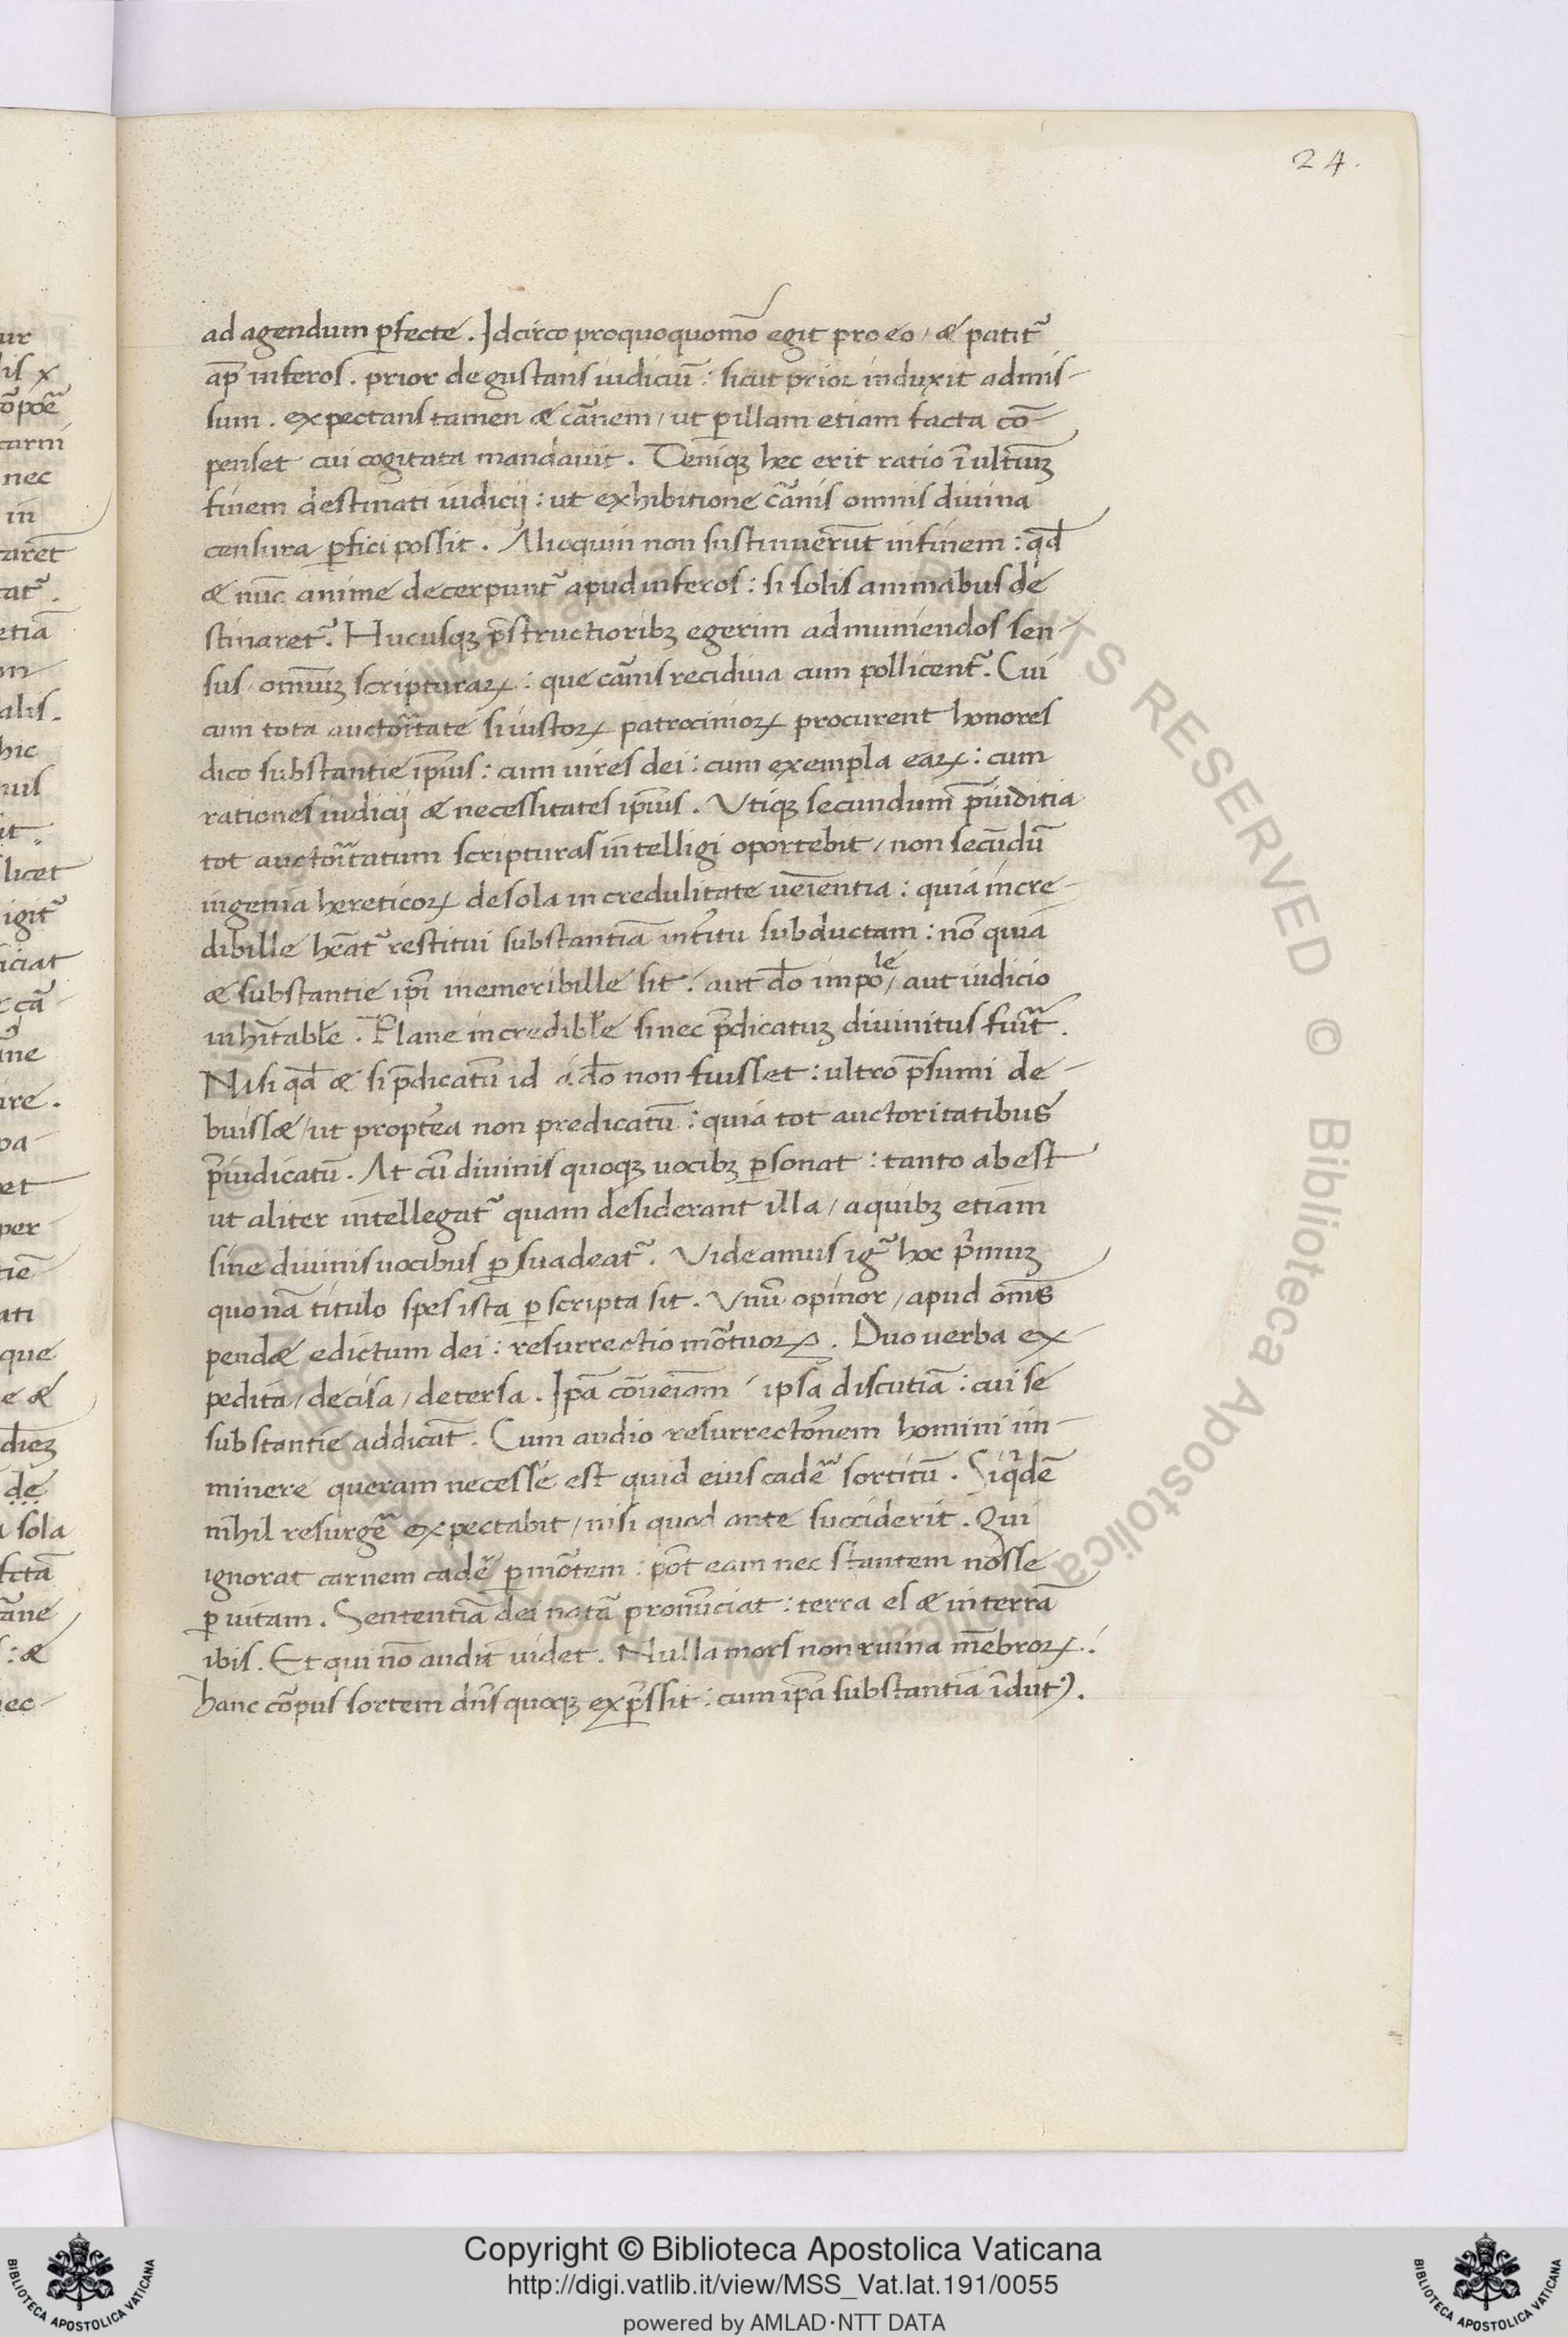 24.
ad agendum ꝑfecte. Idcirco proquoquomo᷒ egit pro eo / æ patit᷑
ap̄ inferos. prior degustans iudiciū: sicut prior induxit admis-
sum. expectans tamen æ cār̄nem / ut ꝑ illam etiam facta cō-
penset cui cogitata mandauit. Deniqꝫ hec erit ratio ī ultimuꝫ
finem destinati iudicij: ut exhibitione cār̄nis omnis diuina
censura ꝑfici possit. Alioquin non sustinuerūt in finem: qd̄
æ nūc anime decerpunt᷑ apud inferos: si solis animabus de
stinaret᷑. Hucusqꝫ p̄structioribꝫ egerim ad muniendos sen-
sus omniuꝫ scripturaꝝ: que cār̄nis recidiua cum pollicent᷑. Cui
cum tota auctor̄itate si iustoꝝ patrocinioꝝ procurent honores
dico substantie ip̄ius: cum uires dei: cum exempla eaꝝ: cum
rationes iudicij æ necessitates ip̄ius. Vtiqꝫ secundum p̄iuditia
tot auctor̄itatum scripturas intelligi oportebit / non secūdū
ingenia hereticoꝝ de sola incredulitate ueīentia: quia incre-
dibille hēat᷑ restitui substantiā int̄itu subductam: nō quia
æ substantie ip̄i inemeribille sit: aut dō impoˡᵉ / aut iudicio
inhītabłe. Plane incredibłe si nec p̄dicatuꝫ diuinitus fuīt.
Nisi qd̄ æ si p̄dicatū id á dō non fuisset: ultro p̄sumi de-
buissæ / ut propt̄ea non predicatū: quia tot auctoritatibus
p̄iudicatū. At cū diuinis quoqꝫ uocibꝫ ꝑsonat: tanto abest
ut aliter intellegat᷑ quam desiderant illa / a quibꝫ etiam
sine diuinis uocibus ꝑsuadeat᷑. Videamus ig᷑ hoc p̄muꝫ
quonā titulo spes ista ꝑscripta sit. Vnū opinor / apud om̄s
pendæ edictum dei: resurrectio mor̄tuoꝝ. Duo uerba ex-
pedita / decisa / detersa. Ip̄a cōueīam / ipsa discutiā: cui se
substantie addicāt. Cum audio resurrectōnem homini im-
minere queram necesse est quid eius cadē sortitū. Siqⁱdē
nihil resurgē expectabit / nisi quod ante succiderit. Qui
ignorat carnem cadē ꝑ mōtem: pōt eam nec stantem nosse
ꝑ uitam. Sententiā dei natā pronūciat: terra es æ in terrā
ibis. Et qui nō audit uidet. Nulla mors non ruina mēbroꝝ:
hanc cōpus sortem dn̄s quoqꝫ exp̄ssit: cum ip̄a substantia īdutꝰ.
Copyright © Biblioteca Apostolica Vaticana
http://digi.vatlib.it/view/MSS_Vat.lat.191/0055
powered by AMLAD·NTT DATA